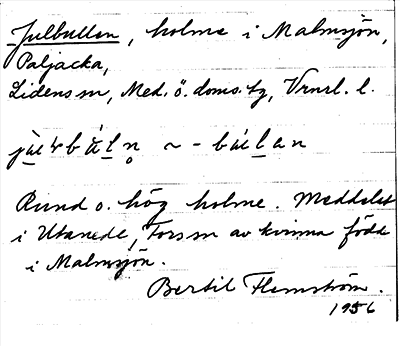 Julbullen, holme i Malmsjön,
Paljacka,
Lidens sn, Med. ö. doms. tg, Vrnrl. l.
~ - bálan
Rund o. hög holme. Meddelat
i Utanede, Fors sn av kvinna född
i Malmsjön.
Bertil Flemström.
1956